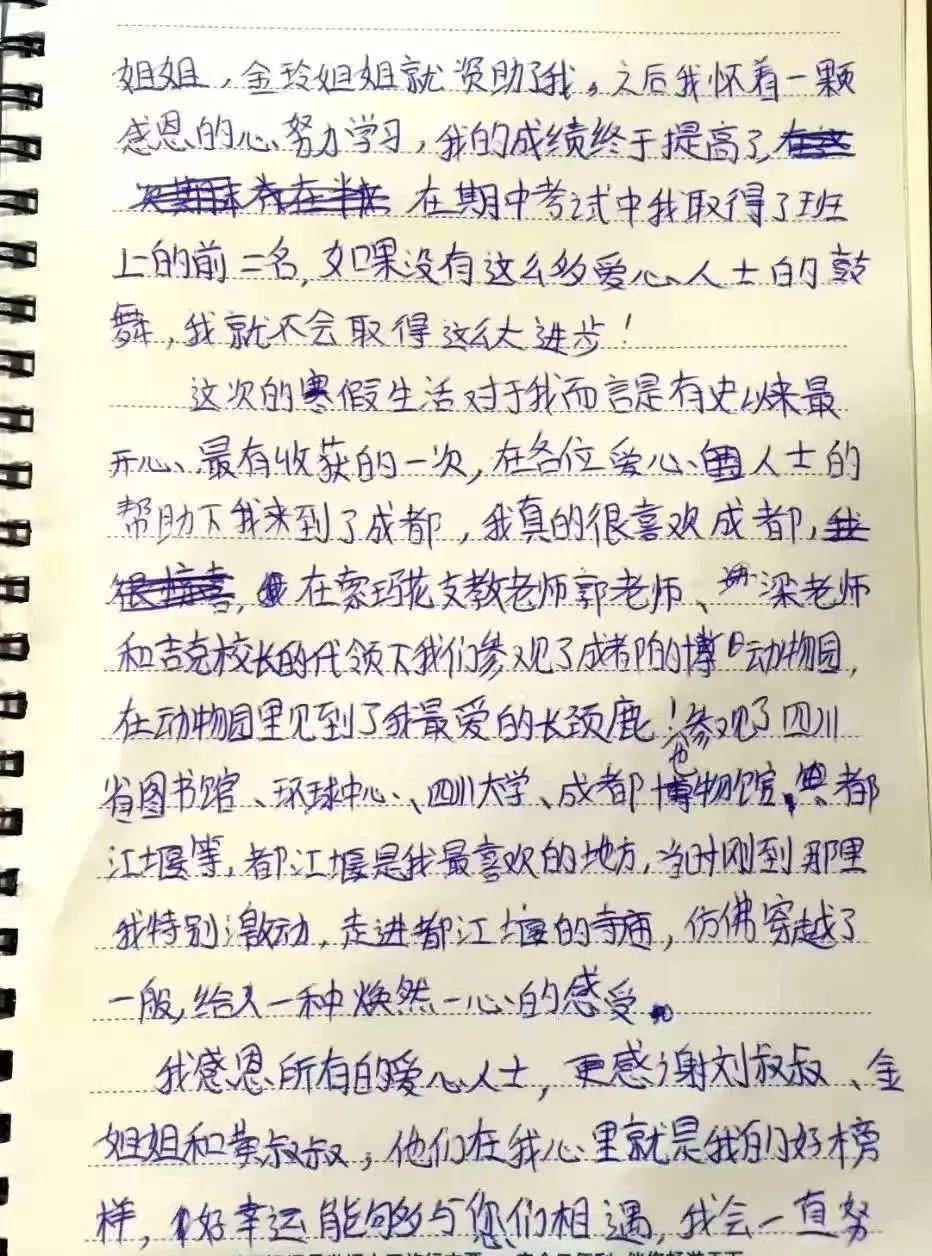 姐姐，金玲姐姐就资助了我，之后我怀着一颗
感恩的心努力学习，我的成绩终于提高了，
在期中考试中我取得了班
上的前二名，如果没有这么多爱心人士的鼓
舞，我就不会取得这么大进步！
这次的寒假生活对于我而言是有史以来最
开心、最有收获的一次，在各位爱心人士的
帮助下我来到了成都，我真的很喜欢成都，
在索玛花支教老师郭老师、梁老师
和吉克校长的代领下我们参观了成都的动物园，
在动物园里见到了我最爱的长颈鹿！也参观了四川
省图书馆、环球中心、四川大学、成都博物馆，都
江堰等，都江堰是我最喜欢的地方，当时刚到那里
我特别激动，走进都江堰的寺庙，仿佛穿越了
一般，给人一种焕然一心的感受。
我感恩所有的爱心人士，更感谢刘叔叔、金
姐姐和黄叔叔，他们在我心里就是我的好榜
样，好幸运能够与您们相遇，我会一直努